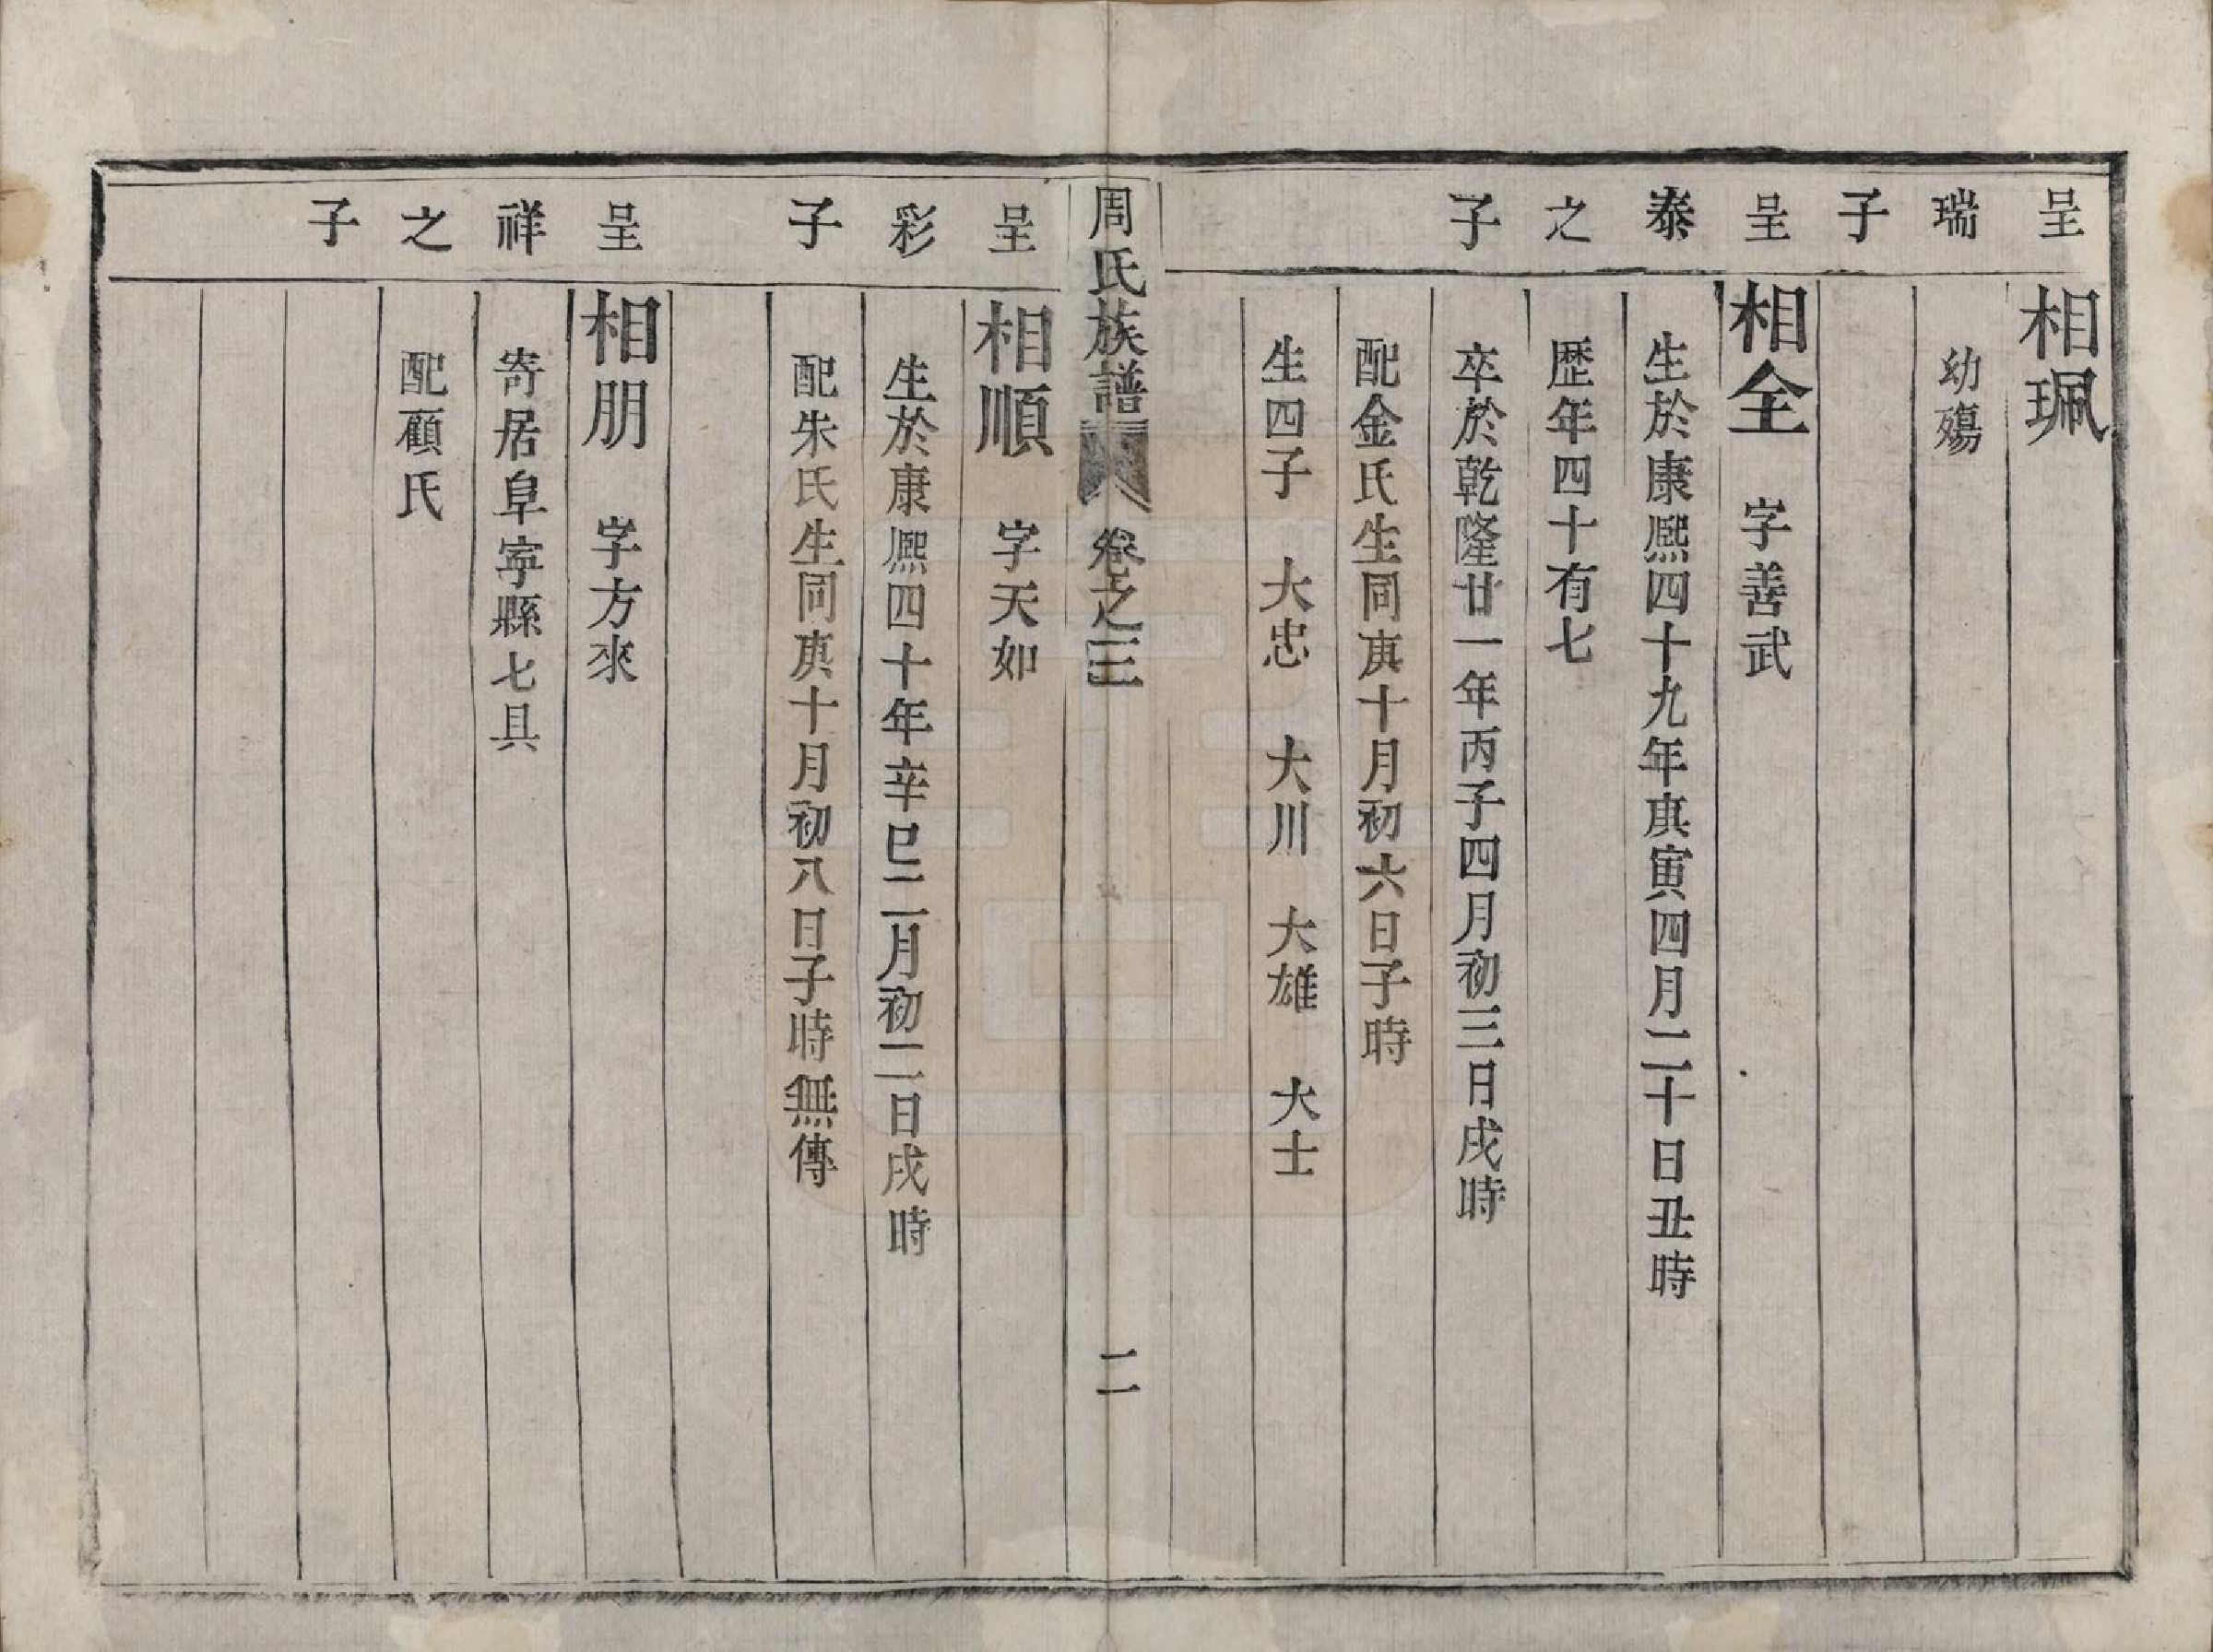 呈瑞子
相珮
幼殤
呈泰之子
相全　字善武
生於康熈四十九年庚寅四月二十日丑時
歴年四十有七
卒於乾隆廿一年丙子四月初三日戌時
配金氏生同庚十月初六日子時
生四子　大忠　大川　大雄　大士
周氏族譜　卷之三　二
呈彩子
相順　字天如
生於康熈四十年辛巳二月初二日戌時
配朱氏生同庚十月初八日子時無傳
呈祥之子
相朋　字方來
寄居阜寧縣七具
配顧氏